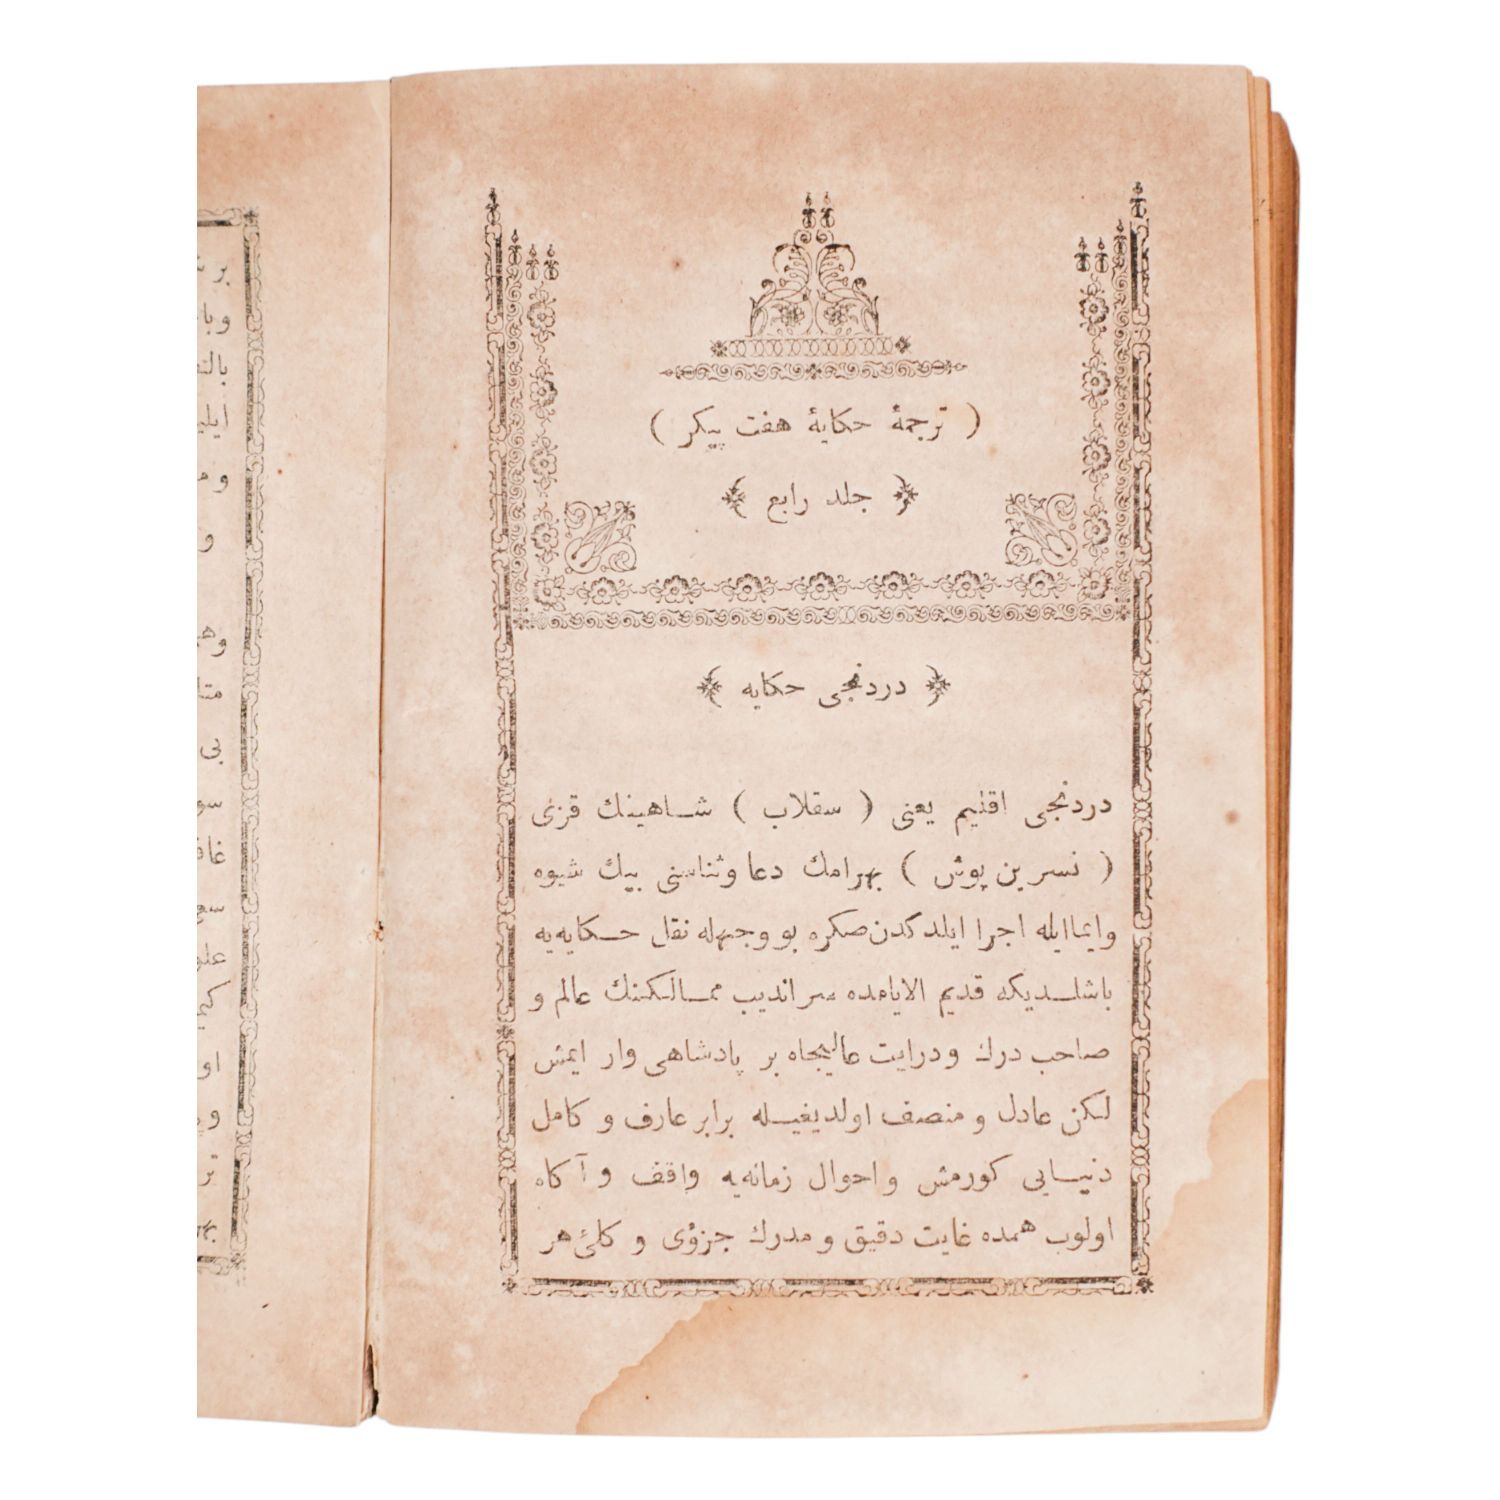 ( ترجمۀ حكایۀ هفت پیكر )
﴿ جلد رابع ﴾
﴿ دردنجی حكایه ﴾
دردنجی اقلیم یعنی ( سقلاب ) شـاهینك قزی
( نسرین پوش ) بهرامك دعا وثناسنی بیك شیوه
وایما ایله اجرا ایلدكدن صكره بو وجهله نقل حـكایه‌یه
باشلـدیكه قدیم الایامده سراندیب ممـالكنك عالم و
صاحب درك ودرایت عالیجاه بر پادشاهی وار ایمش
لكن عادل و منصف اولدیغیـله برابر عارف و كامل
دنیـایی كورمش واحوال زمانه‌یه واقف وآكاه
اولوب همده غایت دقیق و مدرك جزؤی و كلیٔ هر
بر
وبا
ایلیـ
وم
و
وهـ
متا
بی
سو
غاف
سعـ
علو
او
و
تر
بهر